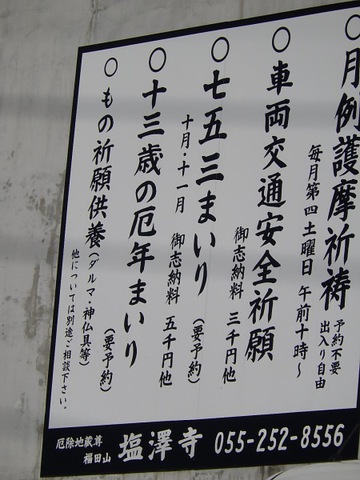 ○月例護摩祈祷 予約不要
出入り自由
毎月第四土曜日 午前十時～
○車両交通安全祈願
御志納料 三千円他
○七五三まいり (要予約)
十月・十一月 御志納料 五千円他
○十三歳の厄年まいり (要予約)
○もの祈願供養(ダルマ・神仏具等)
他については別途ご相談下さい。
厄除地蔵尊
福田山 塩澤寺 055-252-8556